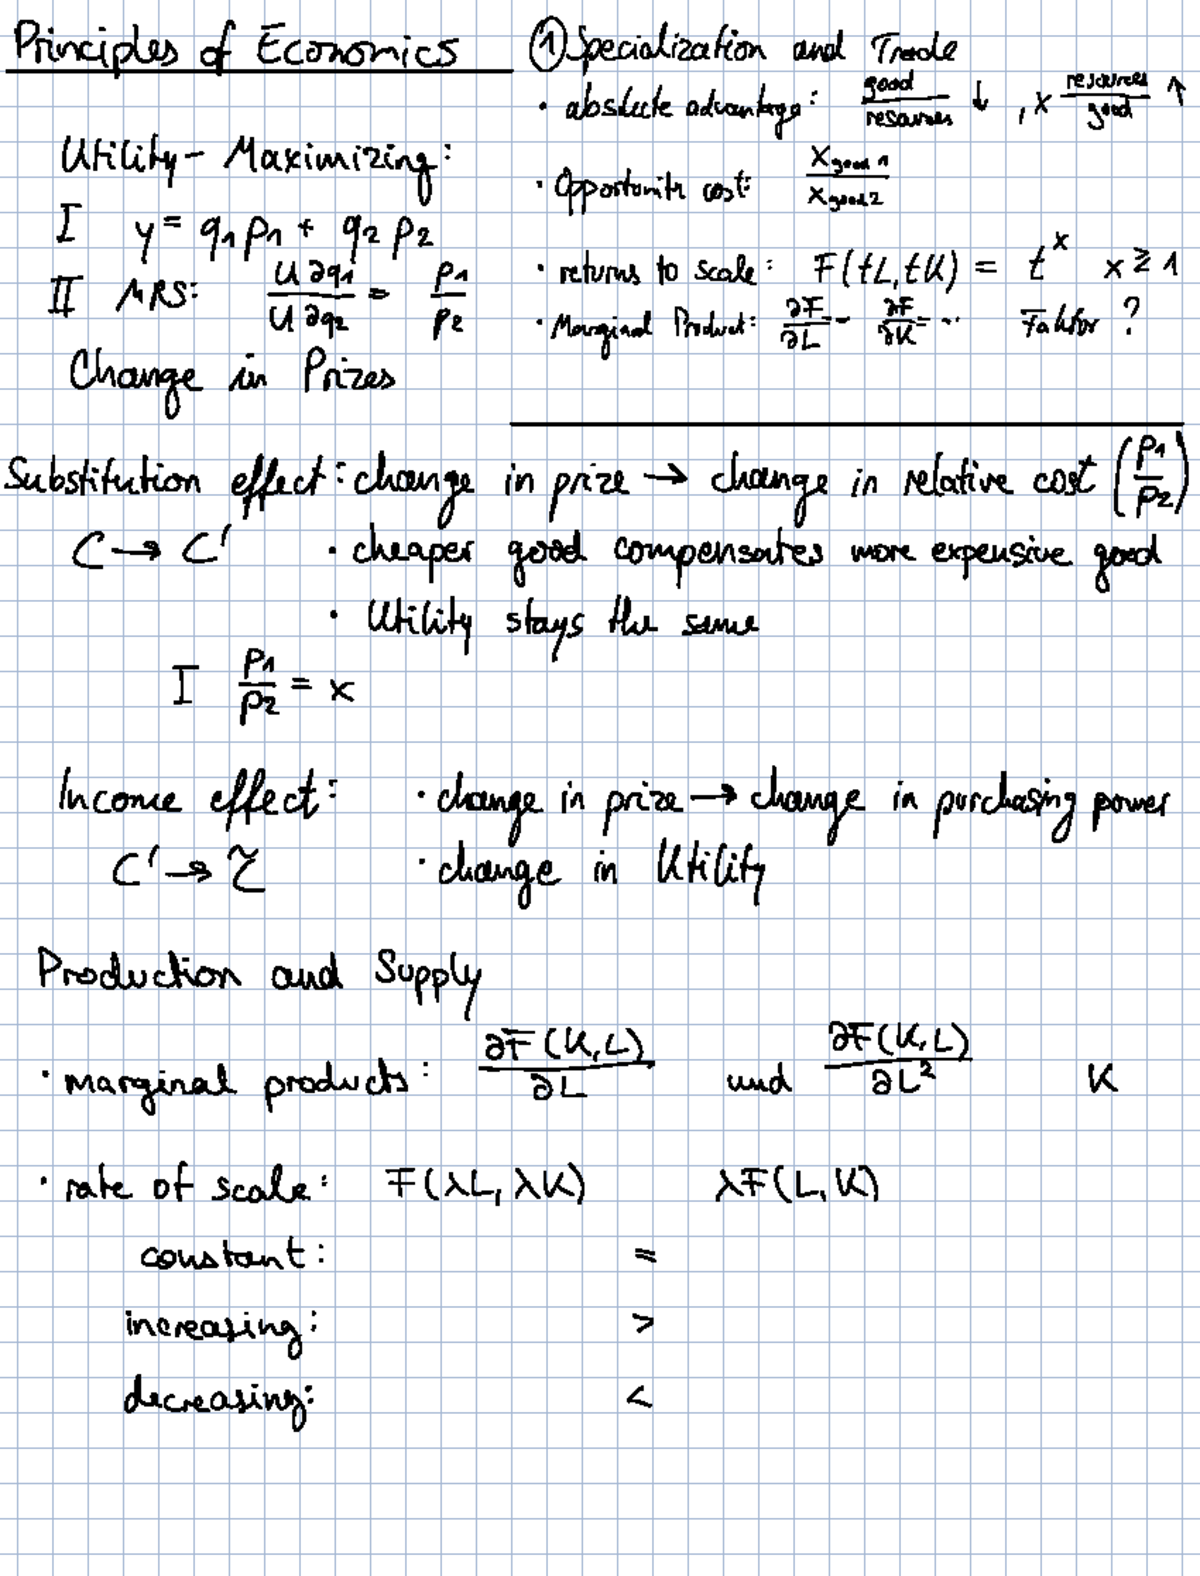 Principles of Economics
Utility - Maximizing:
I y = q1 p1 + q2 p2
II MRS: U ∂q1 / U ∂q2 = p1 / p2
Change in Prizes
① Specialization and Trade
· absolute advantage: good / resources ↓ , x resources / good ↑
· Opportunity cost: x good 1 / x good 2
· returns to scale: F(tL, tK) = t^x x ⋛ 1
· Marginal Product: ∂F/∂L = ·· ∂F/∂K = ·· Faktor ?
Substitution effect: change in prize → change in relative cost (p1/p2)
C → C' · cheaper good compensates more expensive good
· Utility stays the same
I p1/p2 = x
Income effect: · change in prize → change in purchasing power
C' → C̃ · change in Utility
Production and Supply
· marginal products: ∂F(K,L) / ∂L und ∂F(K,L) / ∂L² K
· rate of scale: F(λL, λK) λF(L,K)
constant: =
increasing: >
decreasing: <